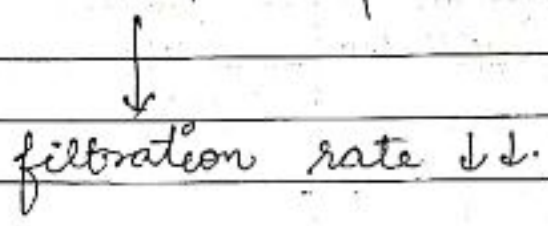 ↓
filtration rate ↓↓.